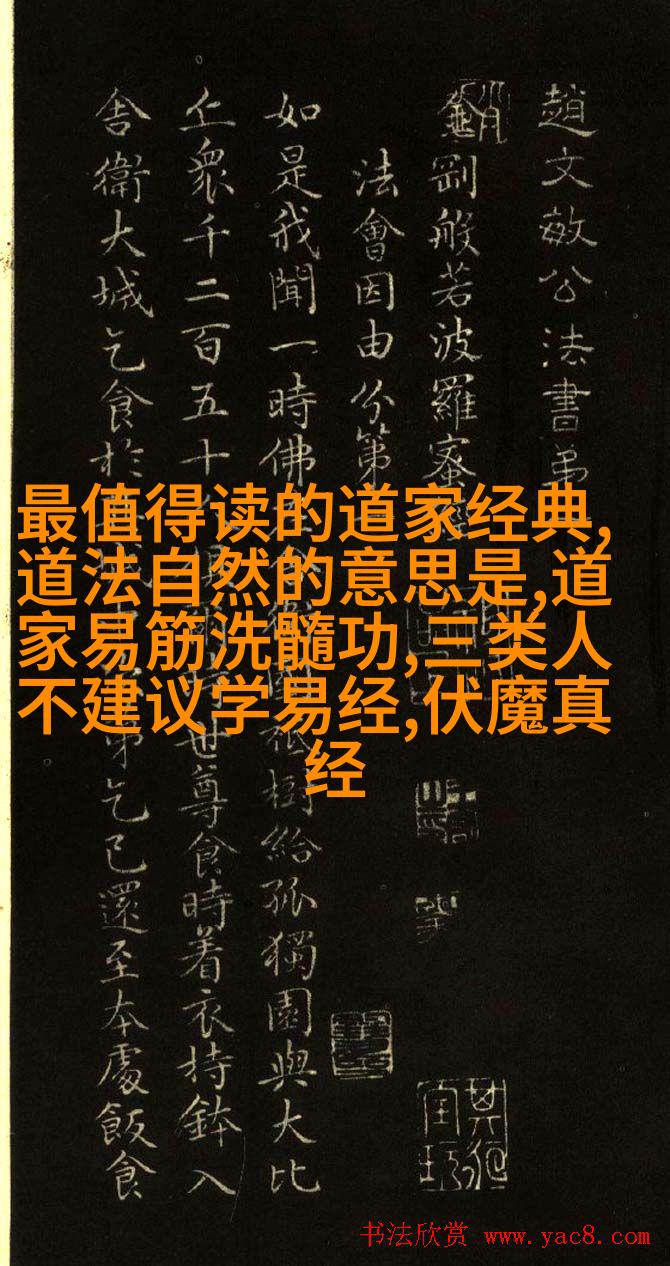 趙文敏公法書第
金剛般若波羅蜜
法會因由分第
如是我聞一時佛樹給孤獨園與大比
丘衆千二百五十世尊食時着衣持鉢入
舍衛大城乞食於第乞已還至本處飯食
最值得读的道家经典,
道法自然的意思是,道
家易筋洗髓功,三类人
不建议学易经,伏魔真
经
书法欣赏 www.yac8.com